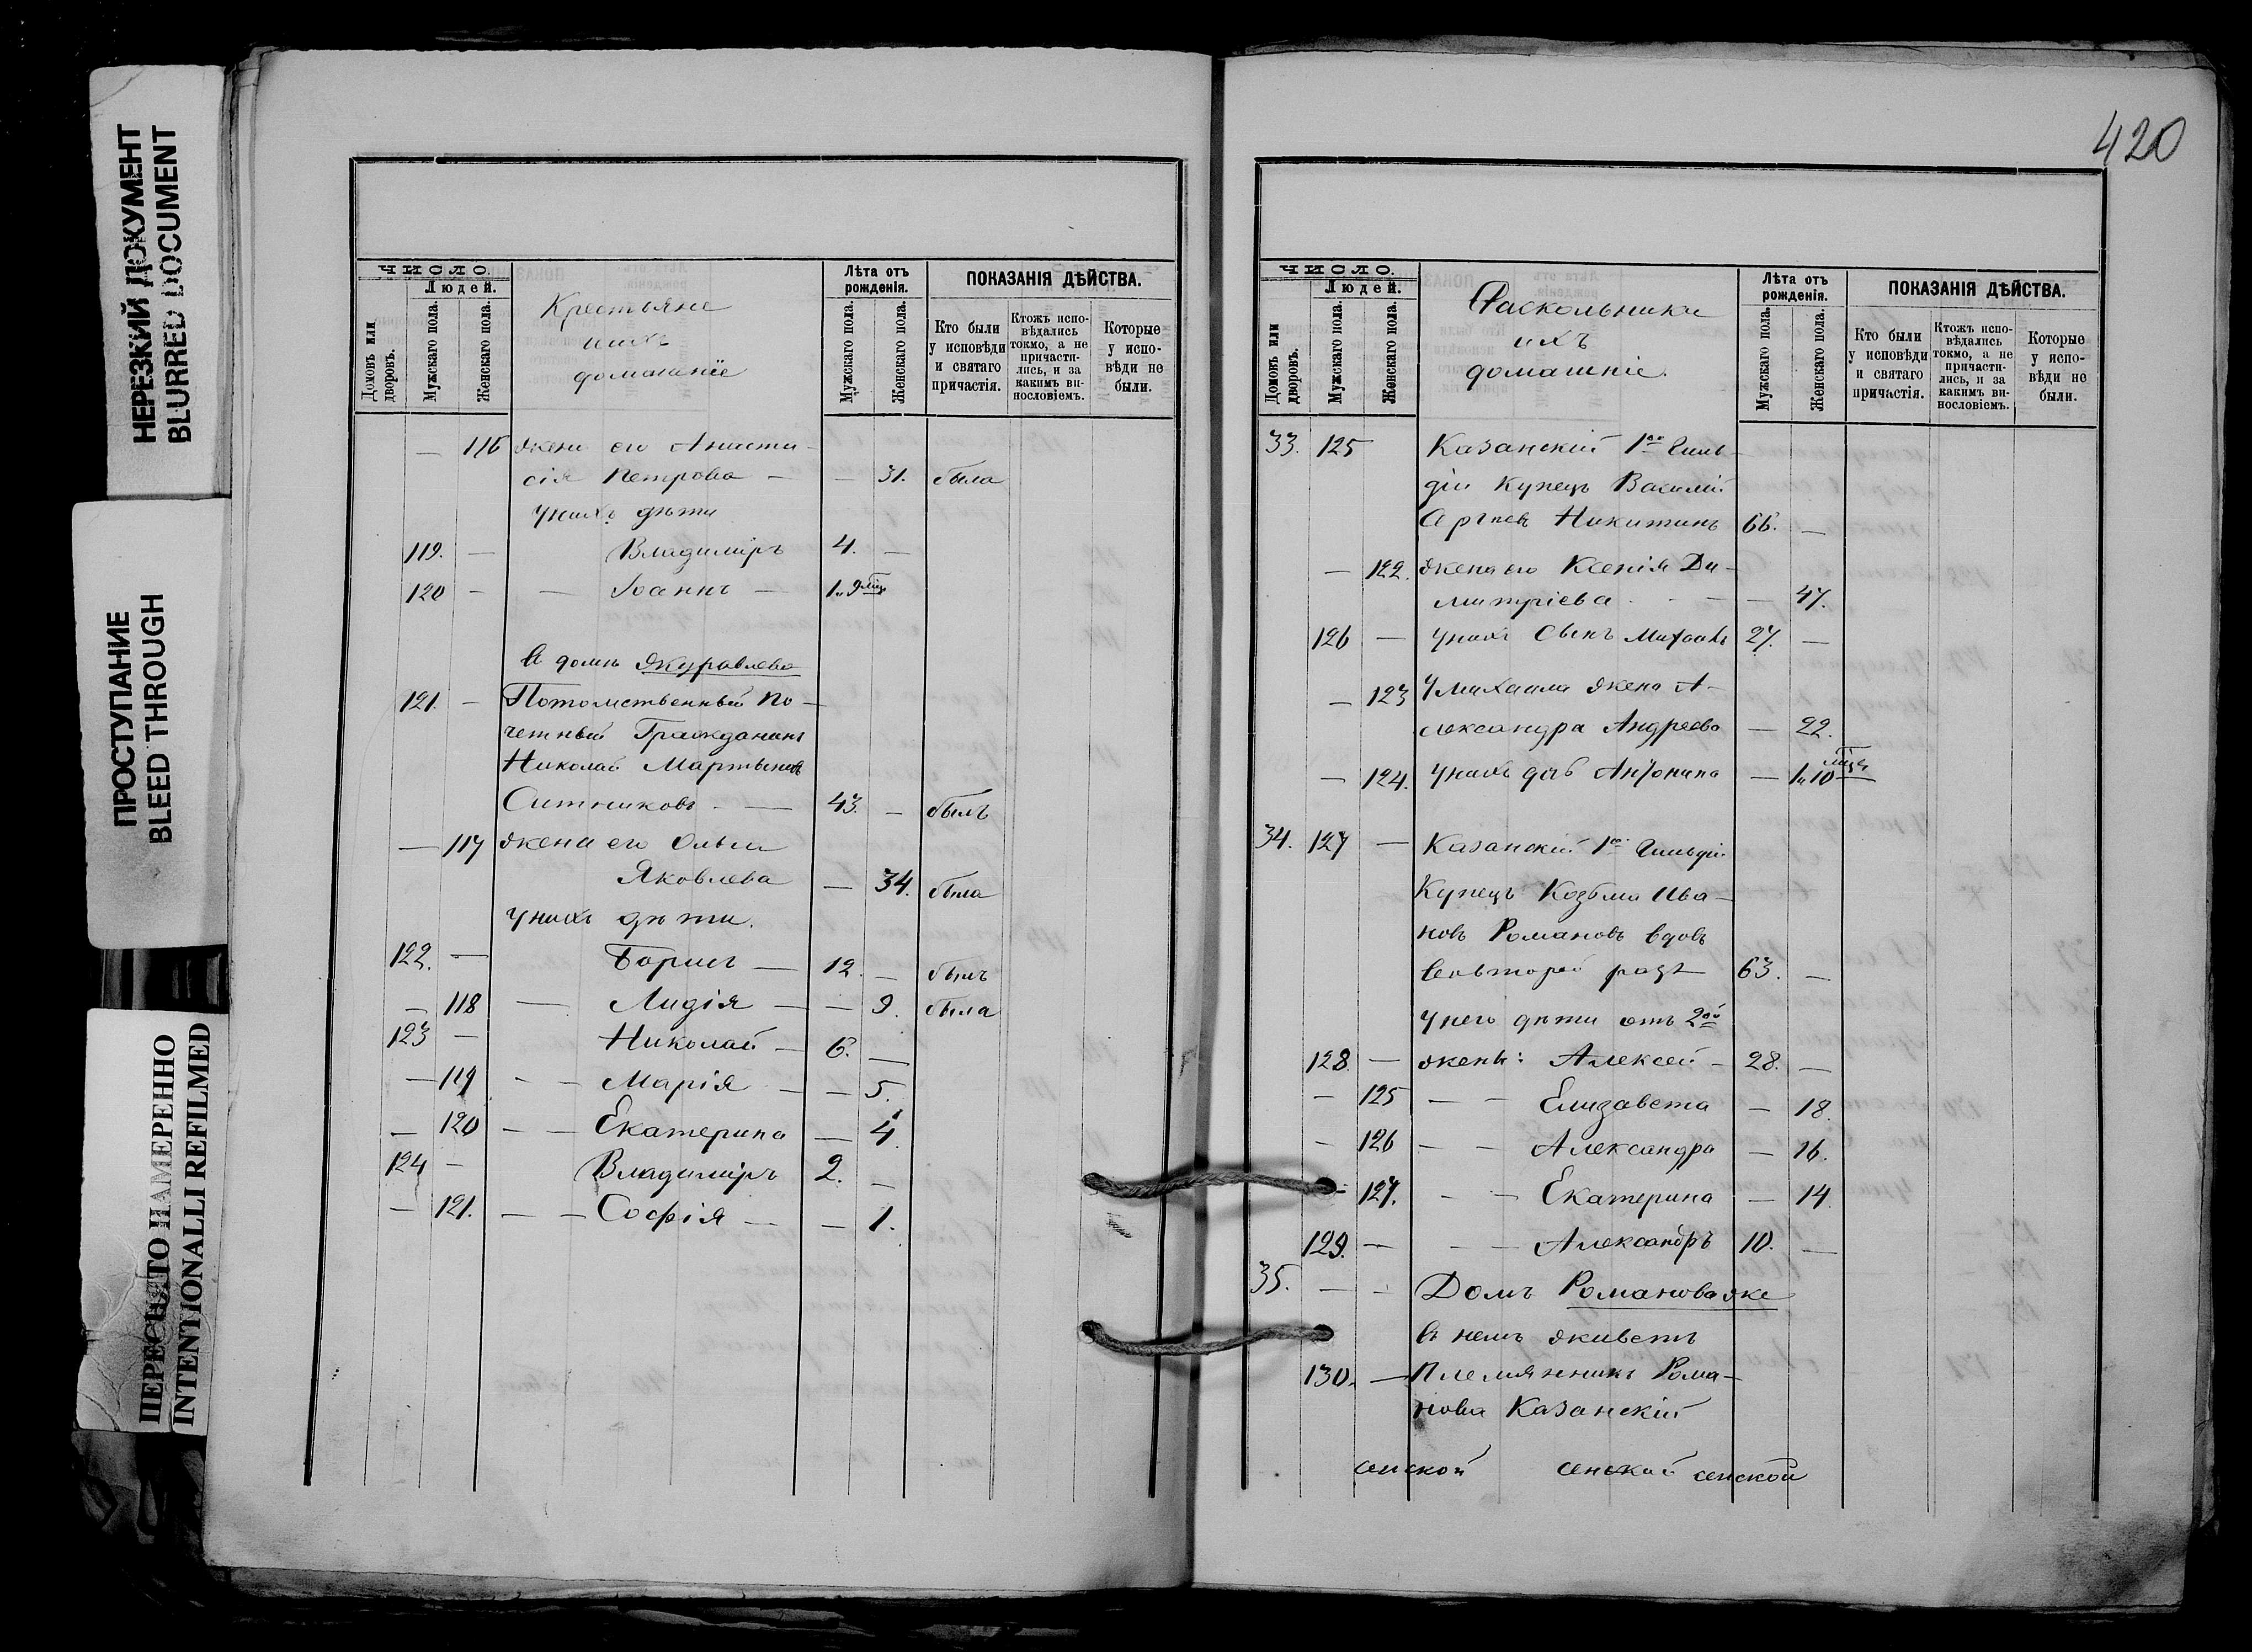 НЕРЕЗКИЙ ДОКУМЕНТ
BLURRED DOCUMENT
ПРОСТУПАНИЕ
BLEED THROUGH
ПЕРЕСНЯТО НАМЕРЕННО
INTENTIONALLI REFILMED
ЧИСЛО.
Людей.
Домовъ или дворовъ.
Мужскаго пола.
Женскаго пола.
Крестьяне
ихъ
домашніе
Лѣта отъ рожденія.
Мужскаго пола.
Женскаго пола.
ПОКАЗАНІЯ ДѢЙСТВА.
Кто были у исповѣди и святаго причастія.
Ктожъ исповѣдались токмо, а не причастились, и за какимъ винословіемъ.
Которые у исповѣди не были.
— 116 жена его Анаста-
сія Петрова — — 31. была
У нихъ дѣти
119. — Владиміръ 4. —
120 — — Іоаннъ — 1 и 9 мѣц
В домѣ Журавлева
121. — Потомственный По-
четный Гражданинъ
Николай Мартыновъ
Ситниковъ — 43. — былъ
— 117 жена его Ольга
Яковлева — 34. была
У нихъ дѣти.
122. — Борисъ — 12. — былъ
— 118 — Лидія — — 9. была
123 — Николай — 6. —
— 119 — — Марія — — 5.
— 120 — — Екатерина — 4.
124 — Владиміръ 2. —
— 121. — — Софія — — 1.
420
ЧИСЛО.
Людей.
Домовъ или дворовъ.
Мужскаго пола.
Женскаго пола.
Раскольники
ихъ
домашніе.
Лѣта отъ рожденія.
Мужскаго пола.
Женскаго пола.
ПОКАЗАНІЯ ДѢЙСТВА.
Кто были у исповѣди и святаго причастія.
Ктожъ исповѣдались токмо, а не причастились, и за какимъ винословіемъ.
Которые у исповѣди не были.
33. 125 Казанскій 1ой Гиль-
діи Купецъ Василій
Никитинъ 66. —
— 122. жена его Ксенія Ди-
митріева — — 47.
126 — У нихъ Сынъ Михаилъ 27. —
— 123 У Михаила жена А-
лександра Андреева — 22.
— 124. У нихъ дчь Антонина — 1 и 10 мѣц
34. 127 — Казанскій 1ой Гильдіи
Купецъ Козьма Ива-
новъ Романовъ вдовъ
во второй разъ 63. —
У него дѣти отъ 2ой
128. — жены: Алексей — 28. —
— 125 — — Елизавета — 18.
— 126 — — Александра — 16.
— 127. — — Екатерина — 14
129. — — — Александръ 10. —
35. — — Домъ Романова же
В немъ живетъ
130. — Племянникъ Рома-
нова Казанскій